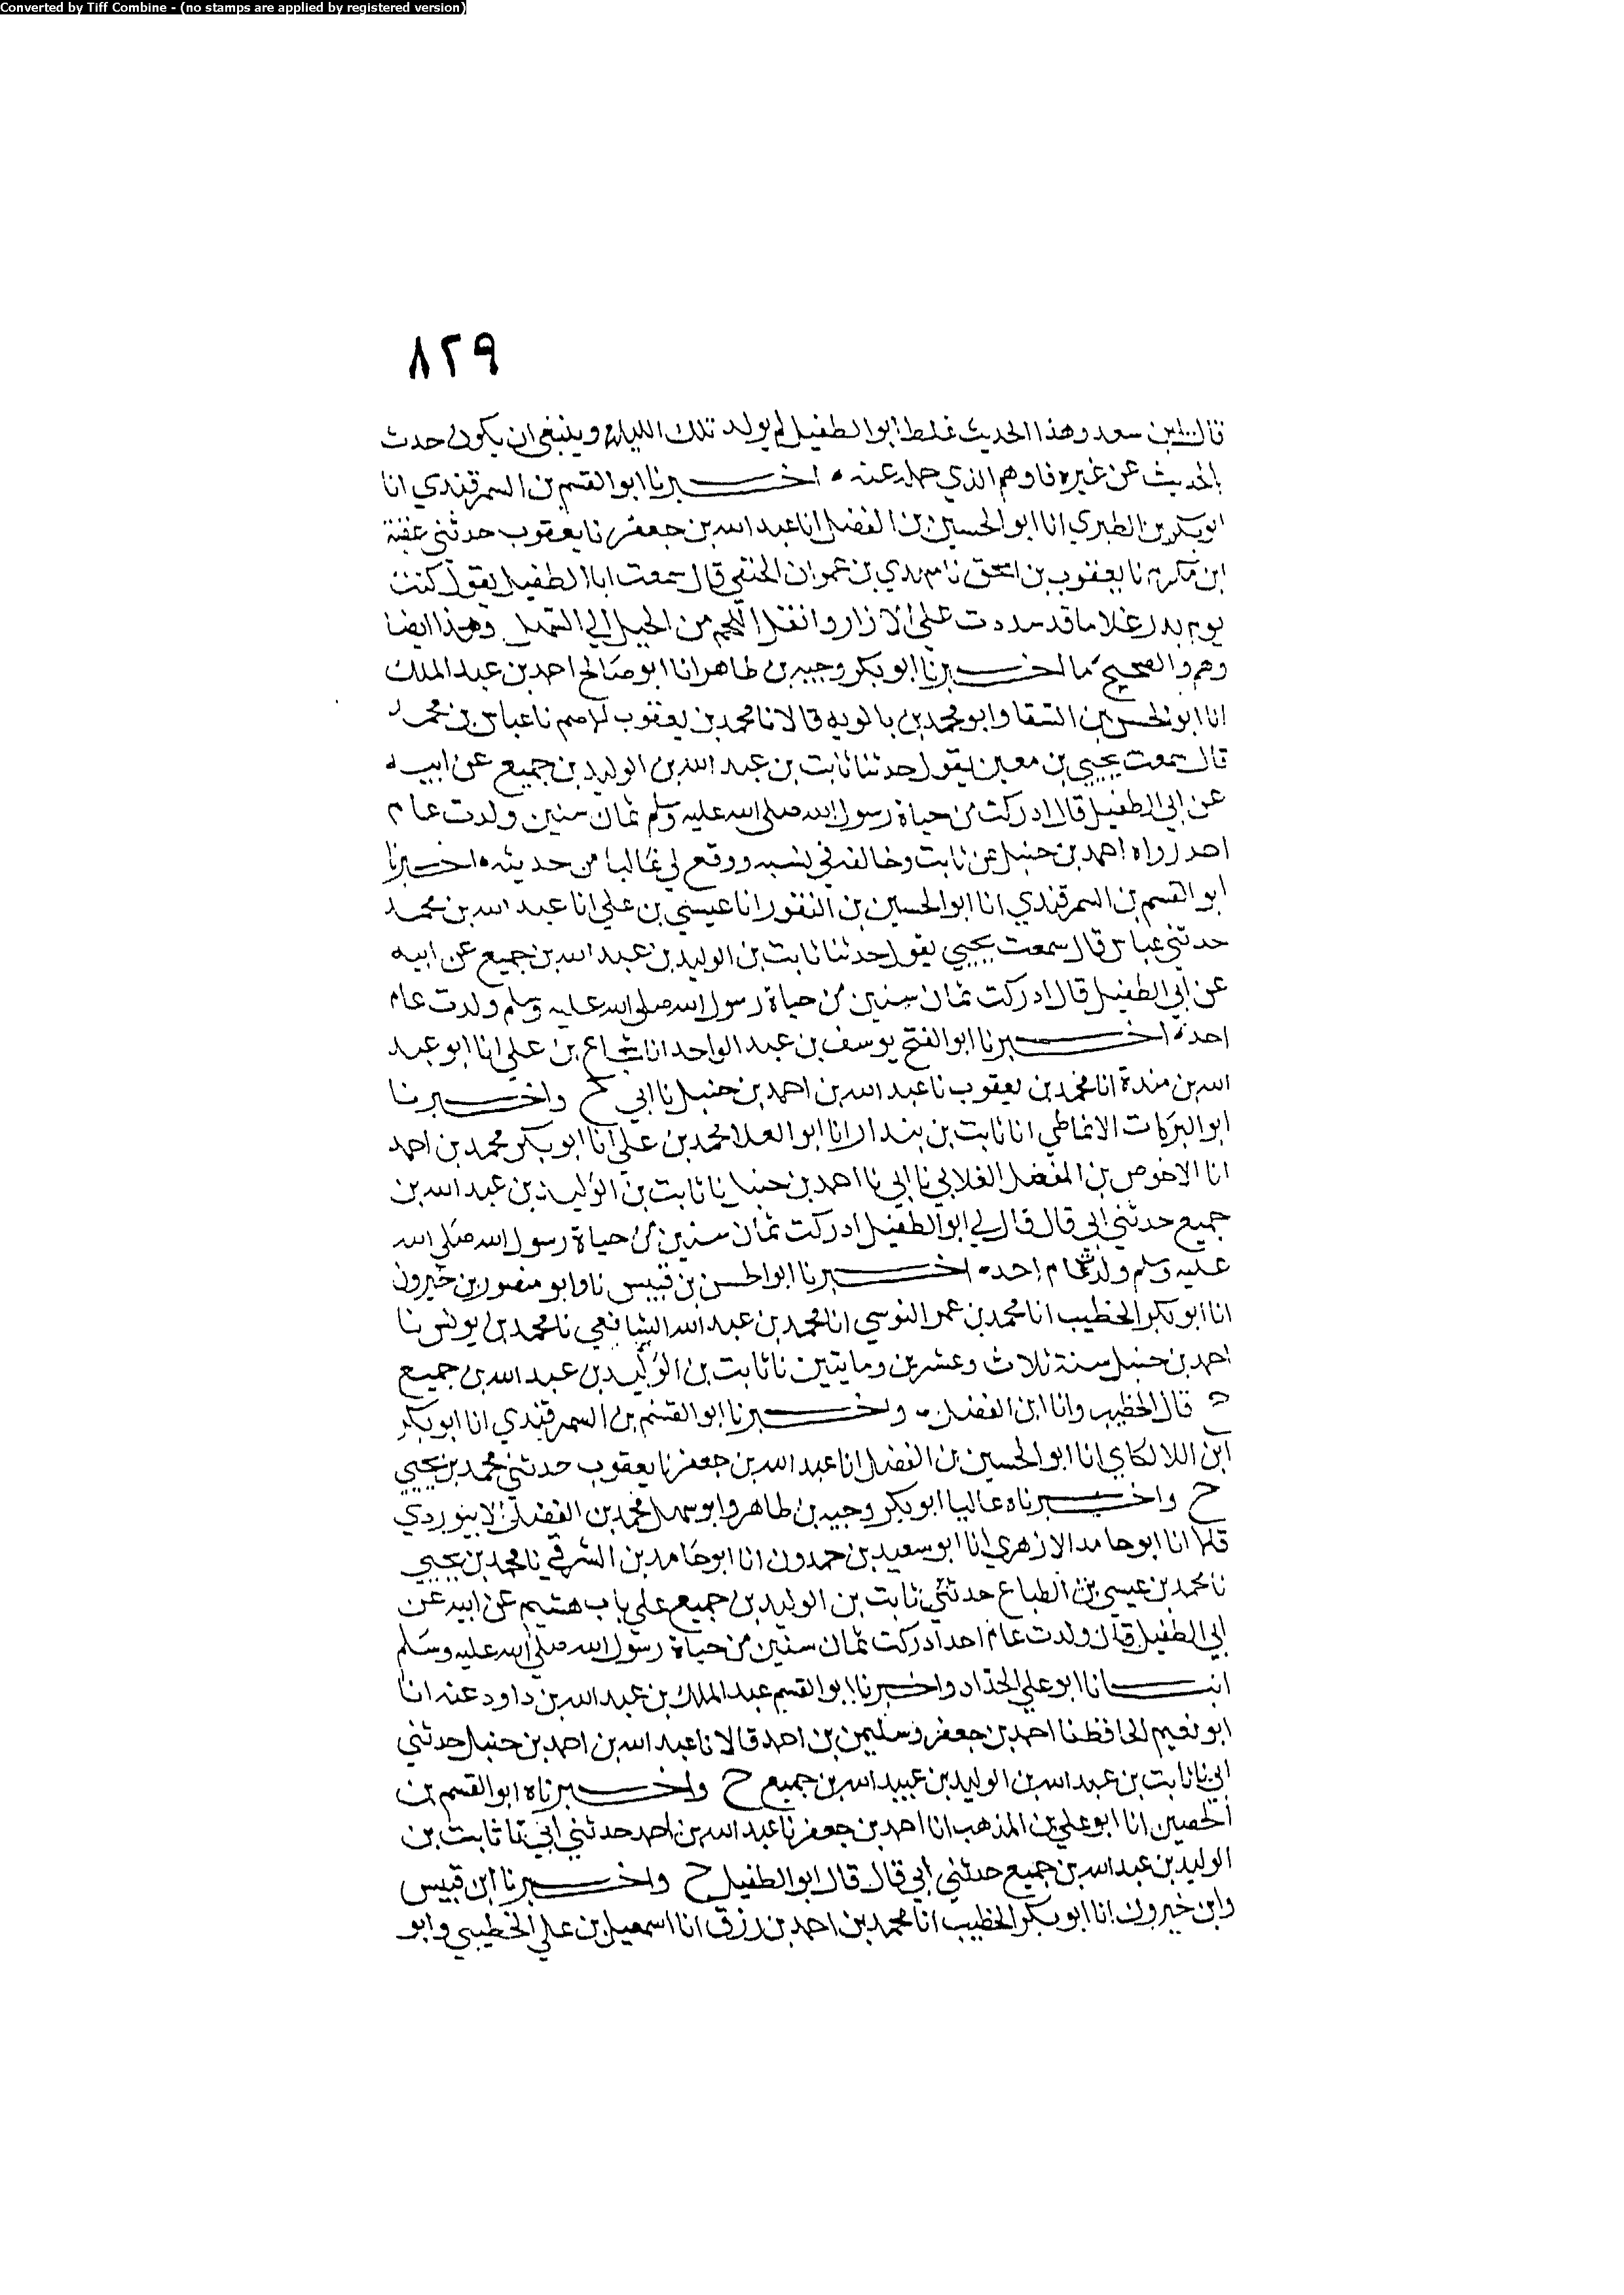 Converted by Tiff Combine - (no stamps are applied by registered version)
٨٢٩
قال ابن سعد وهذا الحديث غلط ابو الطفيل لم يولد تلك الليلة وينبغي ان يكون حدث
الحديث عن غيره فاوهم الذي حمله عنه اخبرنا ابو القسم بن السمرقندي انا
ابو بكر بن الطبري انا ابو الحسين بن الفضل انا عبد الله بن جعفر نا يعقوب حدثني عقبة
ابن مكرم نا يعقوب بن اسحق نا مهدي بن عمران الحنفي قال سمعت ابا الطفيل يقول كنت
يوم بدر غلاما قد شددت علي الازار وانقل اللحم من الجبل الي السهل وهذا ايضا
وهم والصحيح ما اخبرنا ابو بكر وجيه بن طاهر انا ابو صالح احمد بن عبد الملك
انا ابو الحسن بن السقا وابو محمد بن بالويه قالا نا محمد بن يعقوب الاصم نا عباس بن محمد
قال سمعت يحيي بن معين يقول حدثنا ثابت بن عبد الله بن الوليد بن جميع عن ابيه
عن ابي الطفيل قال ادركت من حياة رسول الله صلى الله عليه وسلم ثمان سنين ولدت عام
احد رواه احمد بن حنبل عن ثابت وخالفه في نسبه ووقع لي غالبا من حديثه اخبرنا
ابو القسم بن السمرقندي انا ابو الحسين بن النقور انا عيسي بن علي انا عبد الله بن محمد
حدثني عباس قال سمعت يحيي يقول حدثنا ثابت بن الوليد بن عبد الله بن جميع عن ابيه
عن ابي الطفيل قال ادركت ثمان سنين من حياة رسول الله صلى الله عليه وسلم ولدت عام
احد اخبرنا ابو الفتح يوسف بن عبد الواحد انا شجاع بن علي انا ابو عبد
الله بن مندة انا محمد بن يعقوب نا عبد الله بن احمد بن حنبل نا ابي ح واخبرنا
ابو البركات الانماطي انا ثابت بن بندار انا ابو العلا محمد بن علي انا ابو بكر محمد بن احمد
انا الاحوص بن المفضل الغلابي نا ابي نا احمد بن حنبل نا ثابت بن الوليد بن عبد الله بن
جميع حدثني ابي قال قال لي ابو الطفيل ادركت ثمان سنين من حياة رسول الله صلى الله
عليه وسلم ولدت عام احد اخبرنا ابو الحسن بن قبيس نا وابو منصور بن خيرون
انا ابو بكر الخطيب انا محمد بن عمر النرسي انا محمد بن عبد الله الشافعي نا محمد بن يونس نا
احمد بن حنبل سنة ثلاث وعشرين ومايتين نا ثابت بن الوليد بن عبد الله بن جميع
ح قال الخطيب وانا ابن الفضل واخبرنا ابو القسم بن السمرقندي انا ابو بكر
ابن اللالكاي انا ابو الحسين بن الفضل انا عبد الله بن جعفر نا يعقوب حدثني محمد بن يحيي
ح واخبرناه عاليا ابو بكر وجيه بن طاهر وابو سهل محمد بن الفضل الابيوردي
قالا انا ابو حامد الازهري انا ابو سعيد بن حمدون انا ابو حامد بن الشرقي نا محمد بن يحيي
نا محمد بن عيسي بن الطباع حدثني ثابت بن الوليد بن جميع علي باب هشيم عن ابيه عن
ابي الطفيل قال ولدت عام احد ادركت ثمان سنين من حياة رسول الله صلى الله عليه وسلم
انبانا ابو علي الحداد واخبرنا ابو القسم عبد الملك بن عبد الله بن داود عنه انا
ابو نعيم الحافظ نا احمد بن جعفر وسليمن بن احمد قالا نا عبد الله بن احمد بن حنبل حدثني
ابي نا ثابت بن عبد الله بن الوليد بن عبيد الله بن جميع ح واخبرناه ابو القسم بن
الحصين انا ابو علي بن المذهب انا احمد بن جعفر نا عبد الله بن احمد حدثني ابي نا ثابت بن
الوليد بن عبد الله بن جميع حدثني ابي قال قال ابو الطفيل ح واخبرنا ابن قبيس
وابن خيرون انا ابو بكر الخطيب انا محمد بن احمد بن رزق انا اسمعيل بن علي الخطبي وابو